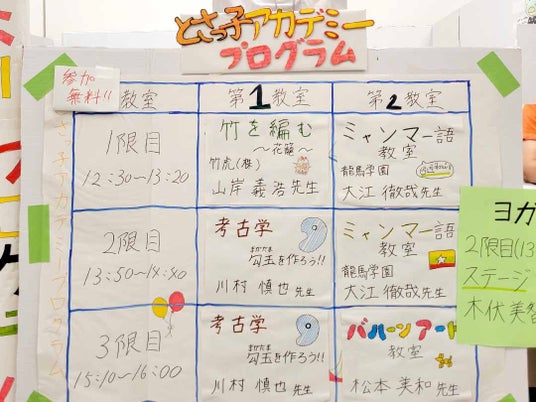 とさっ子アカデミー
プログラム
参加
無料!!
教室
第1教室
第2教室
1限目
12:30~13:20
竹を編む
~花籠~
竹虎(株)
山岸 義浩先生
ミャンマー語
教室
龍馬学園
大江 徹哉先生
2限目
13:50~14:40
考古学
まがたま
勾玉を作ろう!!
川村 慎也先生
ミャンマー語
教室
龍馬学園
大江 徹哉先生
3限目
15:10~16:00
考古学
まがたま
勾玉を作ろう!!
川村 慎也先生
バルーンアート
教室
松本 美和先生
さっ子アカデミープログラム
ヨガ
2限目(13
ステージ
木伏美